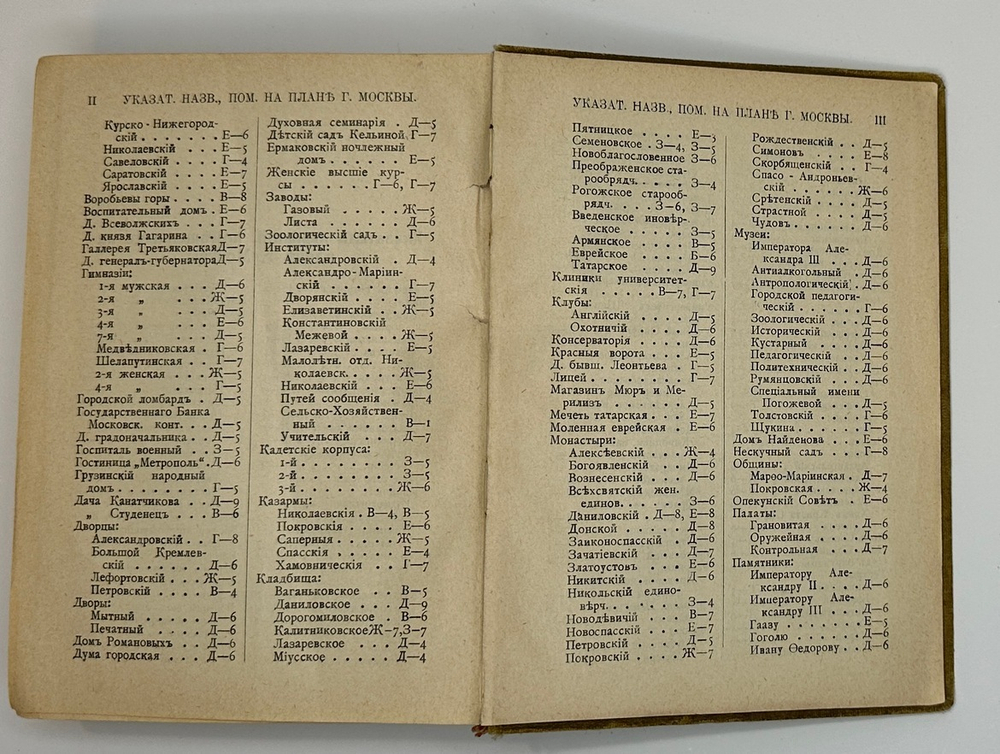 II УКАЗАТ. НАЗВ., ПОМ. НА ПЛАНѢ Г. МОСКВЫ.
Курско-Нижегород-
скій . . . . . . . Е—6
Николаевскій . . . . Е—5
Савеловскій . . . . Г—4
Саратовскій . . . . Е—7
Ярославскій . . . . Е—5
Воробьевы горы . . . . В—8
Воспитательный домъ . Е—6
Д. Всеволжскихъ . . . Г—7
Д. князя Гагарина . . Г—6
Галлерея ТретьяковскаяД—7
Д. генералъ-губернатораД—5
Гимназіи:
1-я мужская . . . . Д—6
2-я „ . . . . Ж—5
3-я „ . . . . Д—5
4-я „ . . . . Е—6
7-я „ . . . . Д—5
Медвѣдниковская . Г—6
Шелапутинская . . . Г—7
2-я женская . . . Ж—5
4-я „ . . . . Г—5
Городской ломбардъ . . Д—5
Государственнаго Банка
Московск. конт. . . Д—5
Д. градоначальника . . Д—5
Госпиталь военный . . З—5
Гостиница „Метрополь“ . Д—6
Грузинскій народный
домъ . . . . . . . Г—5
Дача Канатчикова . . Д—9
„ Студенецъ . . . В—6
Дворцы:
Александровскій . . Г—8
Большой Кремлев-
скій . . . . . . Д—6
Лефортовскій . . . Ж—5
Петровскій . . . . В—4
Дворы:
Мытный . . . . . Д—6
Печатный . . . . . Д—6
Домъ Романовыхъ . . Д—6
Дума городская . . . Д—6
Духовная семинарія . Д—5
Дѣтскій садъ Кельиной Г—7
Ермаковскій ночлежный
домъ . . . . . . . Е—5
Женскіе высшіе кур-
сы . . . . . . Г—6, Г—7
Заводы:
Газовый . . . . . Ж—5
Листа . . . . . . Д—6
Зоологическій садъ . . Г—5
Институты:
Александровскій . . Д—4
Александро-Маріин-
скій . . . . . . Г—7
Дворянскій . . . . Е—5
Елизаветинскій . . Ж—5
Константиновскій
Межевой . . . . Ж—5
Лазаревскій . . . . Е—5
Малолѣтн. отд. Ни-
колаевск. . . . . Ж—5
Николаевскій . . . Е—6
Путей сообщенія . Д—4
Сельско-Хозяйствен-
ный . . . . . . . В—1
Учительскій . . . Д—7
Кадетскіе корпуса:
1-й . . . . . . . З—5
2-й . . . . . . . З—5
3-й . . . . . . . Ж—6
Казармы:
Николаевскія . В—4, В—5
Покровскія . . . . Е—6
Саперныя . . . . . Ж—5
Спасскія . . . . . Е—4
Хамовническія . . Г—7
Кладбища:
Ваганьковское . . В—5
Даниловское . . . Д—9
Дорогомиловское . В—6
КалитниковскоеЖ—7,З—7
Лазаревское . . . . Д—4
Міусское . . . . . Д—4
УКАЗАТ. НАЗВ., ПОМ. НА ПЛАНѢ Г. МОСКВЫ. III
Пятницкое . . . . Е—3
Семеновское . З—4, З—5
Новоблагословенное З—6
Преображенское ста-
рообрядч. . . . . З—4
Рогожское старооб-
рядч. . . . З—6, З—7
Введенское иновѣр-
ческое . . . . . . З—5
Армянское . . . . В—5
Еврейское . . . . Б—6
Татарское . . . . Д—9
Клиники университет-
скія . . . . . В—7, Г—7
Клубы:
Англійскій . . . . Д—5
Охотничій . . . . Д—6
Консерваторія . . . . Д—6
Красныя ворота . . . Е—5
Д. бывш. Леонтьева . . Г—5
Лицей . . . . . . . . Г—7
Магазинъ Мюръ и Ме-
рилизъ . . . . . . Д—5
Мечеть татарская . . . Е—7
Моленная еврейская . Е—6
Монастыри:
Алексѣевскій . . . Ж—4
Богоявленскій . . Д—6
Вознесенскій . . . Д—6
Всѣхсвятскій жен.
единов. . . . . . З—6
Даниловскій . Д—8, Е—8
Донской . . . . . Д—8
Заиконоспасскій . Д—6
Зачатіевскій . . . Д—7
Златоустовъ . . . Е—6
Никитскій . . . . Д—6
Никольскій едино-
вѣрч. . . . . . . З—4
Новодѣвичій . . . В—7
Новоспасскій . . . Е—7
Петровскій . . . . Д—5
Покровскій . . . . Ж—7
Рождественскій . . Д—5
Симоновъ . . . . Е—8
Скорбященскій . . Г—4
Спасо-Андроньев-
скій . . . . . . Ж—6
Срѣтенскій . . . . Д—5
Страстной . . . . Д—5
Чудовъ . . . . . . Д—6
Музеи:
Императора Але-
ксандра III . . . Д—6
Антиалкогольный . Д—6
Антропологическій. Д—6
Городской педагоги-
ческій . . . . . Г—6
Зоологическій . . . Д—6
Историческій . . . Д—6
Кустарный . . . . Д—6
Педагогическій . . Д—6
Политехническій . Д—6
Румянцовскій . . . Д—6
Спеціальный имени
Погожевой . . . Д—5
Толстовскій . . . Г—6
Щукина . . . . . Г—5
Домъ Найденова . . . Е—6
Нескучный садъ . . . Г—8
Общины:
Марѳо-Маріинская . Д—7
Покровская . . . . Ж—4
Опекунскій Совѣтъ . . Е—6
Палаты:
Грановитая . . . . Д—6
Оружейная . . . . Д—6
Контрольная . . . Д—7
Памятники:
Императору Але-
ксандру II . . . . Д—6
Императору Але-
ксандру III . . . Д—6
Гаазу . . . . . . Е—5
Гоголю . . . . . . Д—6
Ивану Ѳедорову . . Д—6